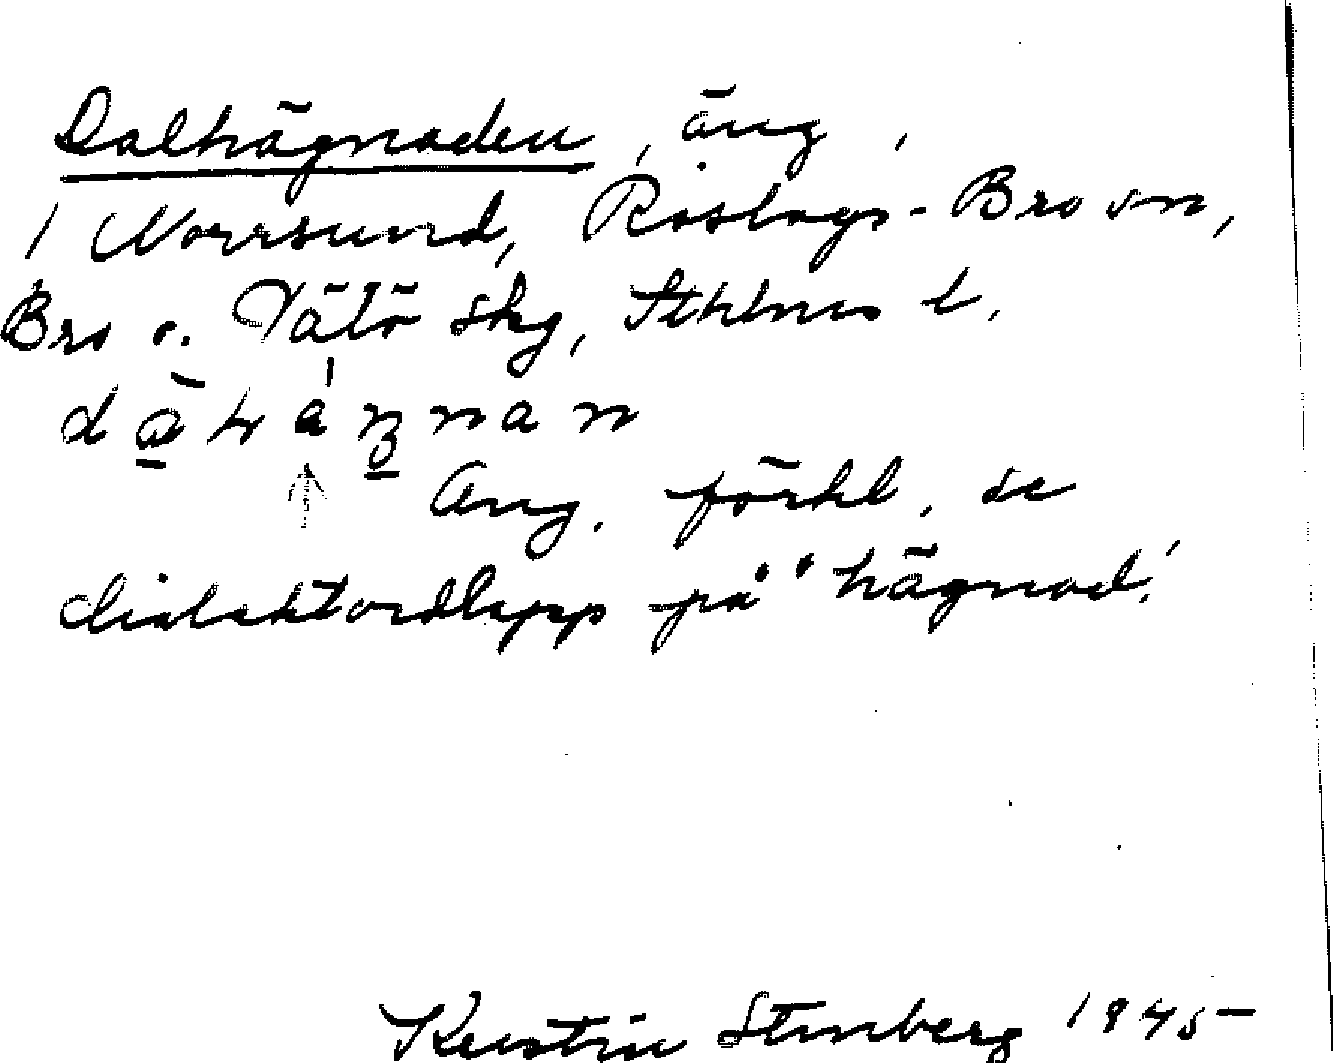 Dalhägnaden, äng,
i Norrsund, Roslags-Bro sn,
Bro o. Vätö skg, Sthlms l.
Ang. förhl. se
dialektordlapp på "hägnad".
Kerstin Stenberg 1945